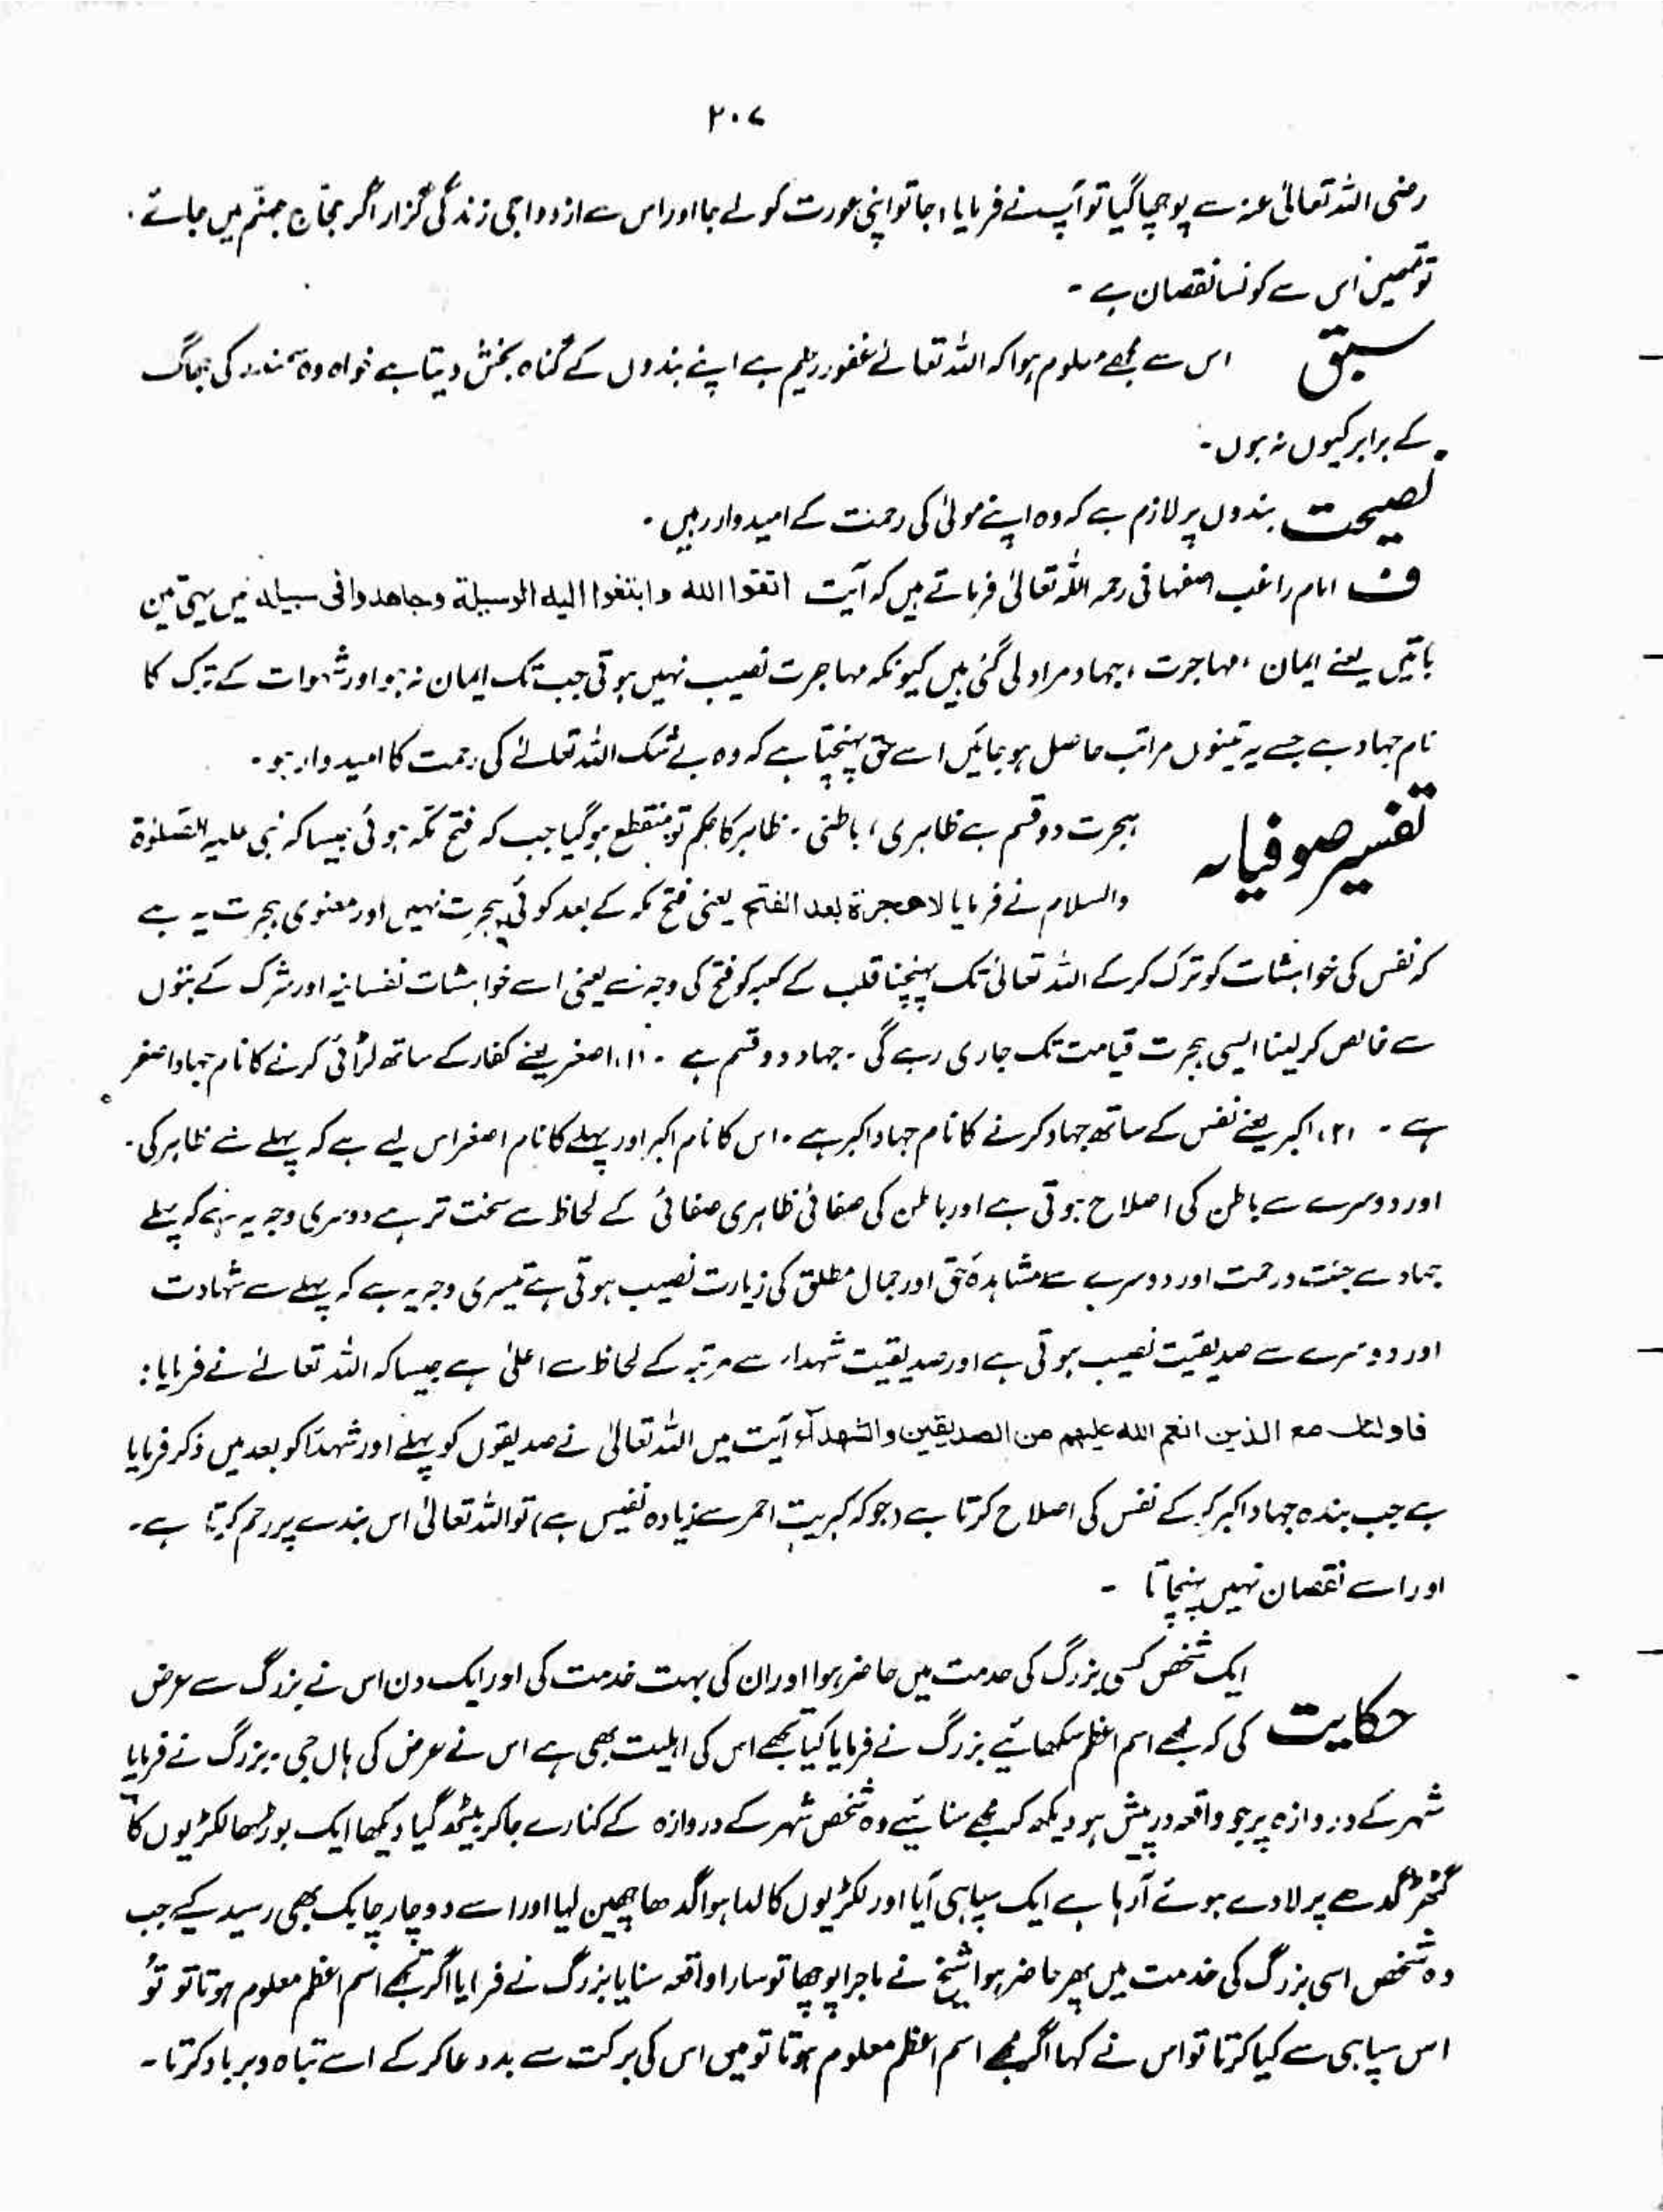 ۲۰۷
رضی اللہ تعالیٰ عنہ سے پوچھا گیا تو آپ نے فرمایا، جا تو اپنی عورت کو لے جا اور اس سے ازدواجی زندگی گزار اگر حجاج جہنم میں جائے.
تو تمہیں اس سے کونسا نقصان ہے -
سبق اس سے مجھے معلوم ہوا کہ اللہ تعالےٰ غفور رحیم ہے اپنے بندوں کے گناہ بخش دیتا ہے خواہ وہ سمندر کی جھاگ
کے برابر کیوں نہ ہوں -
نصیحت بندوں پر لازم ہے کہ وہ اپنے مولیٰ کی رحمت کے امیدوار رہیں -
ف امام راغب اصفہانی رحمہ اللہ تعالیٰ فرماتے ہیں کہ آیت اتقوا اللہ وابتغوا الیہ الوسیلة وجاھدوا فی سبیلہ میں یہی تین
باتیں یعنے ایمان ، مہاجرت ، جہاد مراد لی گئی ہیں کیونکہ مہاجرت نصیب نہیں ہوتی جب تک ایمان نہ ہو اور شہوات کے ترک کا
نام جہاد ہے جسے یہ تینوں مراتب حاصل ہو جائیں اسے حق پہنچتا ہے کہ وہ بے شک اللہ تعالےٰ کی رحمت کا امیدوار ہو -
تفسیر صوفیانہ ہجرت دو قسم ہے ظاہری ، باطنی - ظاہر کا حکم تو منقطع ہو گیا جب کہ فتح مکہ ہوئی جیسا کہ نبی علیہ الصلوٰۃ
والسلام نے فرمایا لا ھجرة بعد الفتح یعنی فتح مکہ کے بعد کوئی ہجرت نہیں اور معنوی ہجرت یہ ہے
کہ نفس کی خواہشات کو ترک کر کے اللہ تعالیٰ تک پہنچنا قلب کے کعبہ کو فتح کی وجہ سے یعنی اسے خواہشات نفسانیہ اور شرک کے بتوں
سے خالص کر لینا ایسی ہجرت قیامت تک جاری رہے گی - جہاد دو قسم ہے - (۱) اصغر یعنے کفار کے ساتھ لڑائی کرنے کا نام جہاد اصغر
ہے - (۲) اکبر یعنے نفس کے ساتھ جہاد کرنے کا نام جہاد اکبر ہے - اس کا نام اکبر اور پہلے کا نام اصغر اس لیے ہے کہ پہلے سے ظاہر کی -
اور دوسرے سے باطن کی اصلاح ہوتی ہے اور باطن کی صفائی ظاہری صفائی کے لحاظ سے سخت تر ہے دوسری وجہ یہ ہے کہ پہلے
جہاد سے جنت و رحمت اور دوسرے سے مشاہدۂ حق اور جمال مطلق کی زیارت نصیب ہوتی ہے تیسری وجہ یہ ہے کہ پہلے سے شہادت
اور دوسرے سے صدیقیت نصیب ہوتی ہے اور صدیقیت شہداء سے مرتبہ کے لحاظ سے اعلیٰ ہے جیسا کہ اللہ تعالےٰ نے فرمایا :
فاولئک مع الذین انعم اللہ علیھم من الصدیقین والشھدآء آیت میں اللہ تعالیٰ نے صدیقوں کو پہلے اور شہدا کو بعد میں ذکر فرمایا
ہے جب بندہ جہاد اکبر کر کے نفس کی اصلاح کرتا ہے (جو کہ کبریت احمر سے زیادہ نفیس ہے) تو اللہ تعالیٰ اس بندے پر رحم کرتا ہے -
اور اسے نقصان نہیں پہنچاتا -
ایک شخص کسی بزرگ کی خدمت میں حاضر ہوا اور ان کی بہت خدمت کی اور ایک دن اس نے بزرگ سے عرض
حکایت کی کہ مجھے اسم اعظم سکھائیے بزرگ نے فرمایا کیا تجھے اس کی اہلیت بھی ہے اس نے عرض کی ہاں جی - بزرگ نے فرمایا
شہر کے دروازہ پر جو واقعہ درپیش ہو دیکھ کر مجھے سنائیے وہ شخص شہر کے دروازہ کے کنارے جا کر بیٹھ گیا دیکھا ایک بوڑھا لکڑیوں کا
گٹھڑ گدھے پر لادے ہوئے آرہا ہے ایک سپاہی آیا اور لکڑیوں کا لدا ہوا گدھا چھین لیا اور اسے دو چار چابک بھی رسید کیے جب
وہ شخص اسی بزرگ کی خدمت میں پھر حاضر ہوا شیخ نے ماجرا پوچھا تو سارا واقعہ سنایا بزرگ نے فرمایا اگر تجھے اسم اعظم معلوم ہوتا تو تُو
اس سپاہی سے کیا کرتا تو اس نے کہا اگر مجھے اسم اعظم معلوم ہوتا تو میں اس کی برکت سے بددعا کر کے اسے تباہ و برباد کرتا -